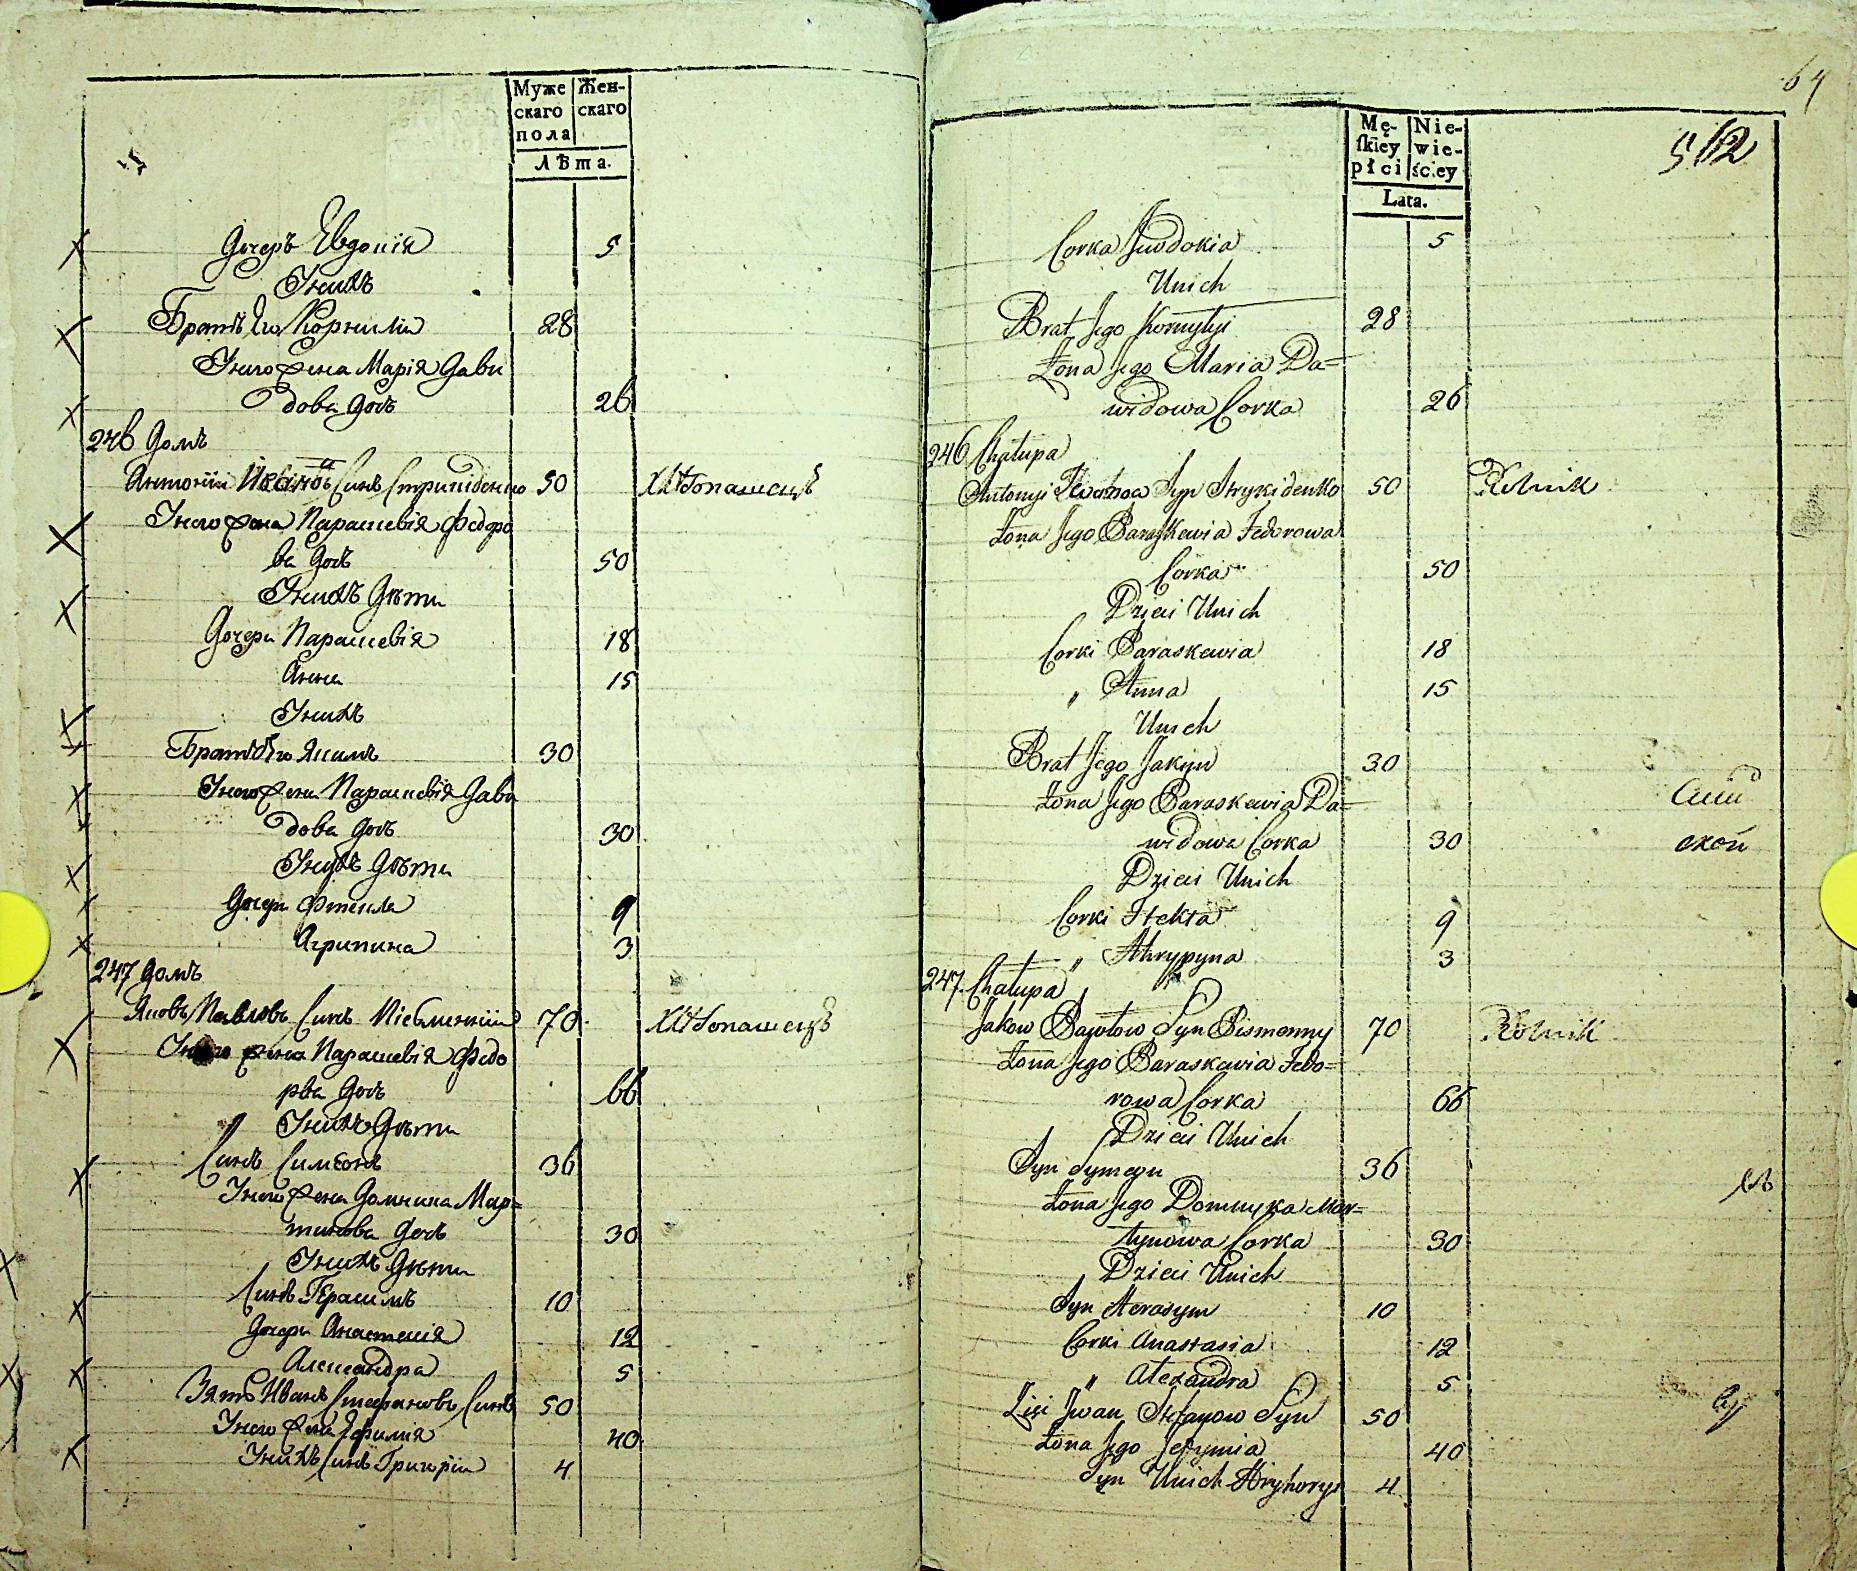 Муже Жен-
скаго скаго
пола
Лѣта.
Дочерь Евдокія 5
У нихъ
Братъ Его Корнилій 28
У него жена Марія Дави
дова дочь 26
246 Домъ
Антоній Ивановъ Синъ Стрикиденко 50 Хлѣбопашецъ
У него жена Параскевія Федоро
ва дочь 50
У нихъ Дѣти
Дочери Параскевія 18
Анна 15
У нихъ
Братъ Его Якимъ 30
У него жена Параскевія Дави
дова дочь 30
У нихъ Дѣти
Дочери Фтекла 9
Агрипина 3
247 Домъ
Яковъ Павловъ Синъ Писменній 70 Хлѣбопашецъ
У него жена Параскевія Федо
рва дочь 66
У нихъ Дѣти
Синъ Симеонъ 36
У него жена Домникa Мар=
тинова дочь 30
У нихъ Дѣти
Синъ Герасимъ 10
Дочери Анастасія 12
Александра 5
Зять Иванъ Стефановъ Синъ 50
У него жена Ефимія 40
У нихъ Синъ Григорій 4
64
512
Mę- Nie-
skiey wie-
płci ściey
Lata.
Corka Jewdokia 5
U nich
Brat Jego Kornyłyi 28
Żona Jego Maria Da=
widowa Corka 26
246 Chałupa
Antonyi Iwanow Syn Strykidenko 50 Rolnik
Żona Jego Paraskewia Fedorowa
Corka 50
Dzieci U nich
Corki Paraskewia 18
„ Anna 15
U nich
Brat Jego Jakym 30
Żona Jego Paraskewia Da=
widowa Corka 30
Dzieci U nich
Corki Ftekla 9
„ Ahrypyna 3
247. Chałupa
Jakow Pawłow Syn Pismenny 70 Rolnik
Żona Jego Paraskewia Fedo=
rowa Corka 66
Dzieci U nich
Syn Symeon 36
Żona Jego Domnyka Mar=
tynowa Corka 30
Dzieci U nich
Syn Herasym 10
Corki Anastasia 12
„ Alexandra 5
Zięć Iwan Stefanow Syn 50
Żona Jego Jefymia 40
Syn U nich Hryhory 4
ской